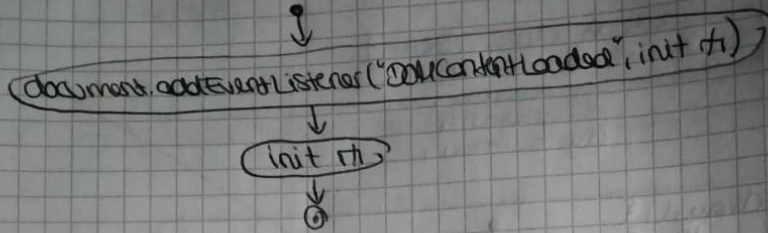 document.addEventListener("DOMContentLoaded", init ⫛)
init ⫛